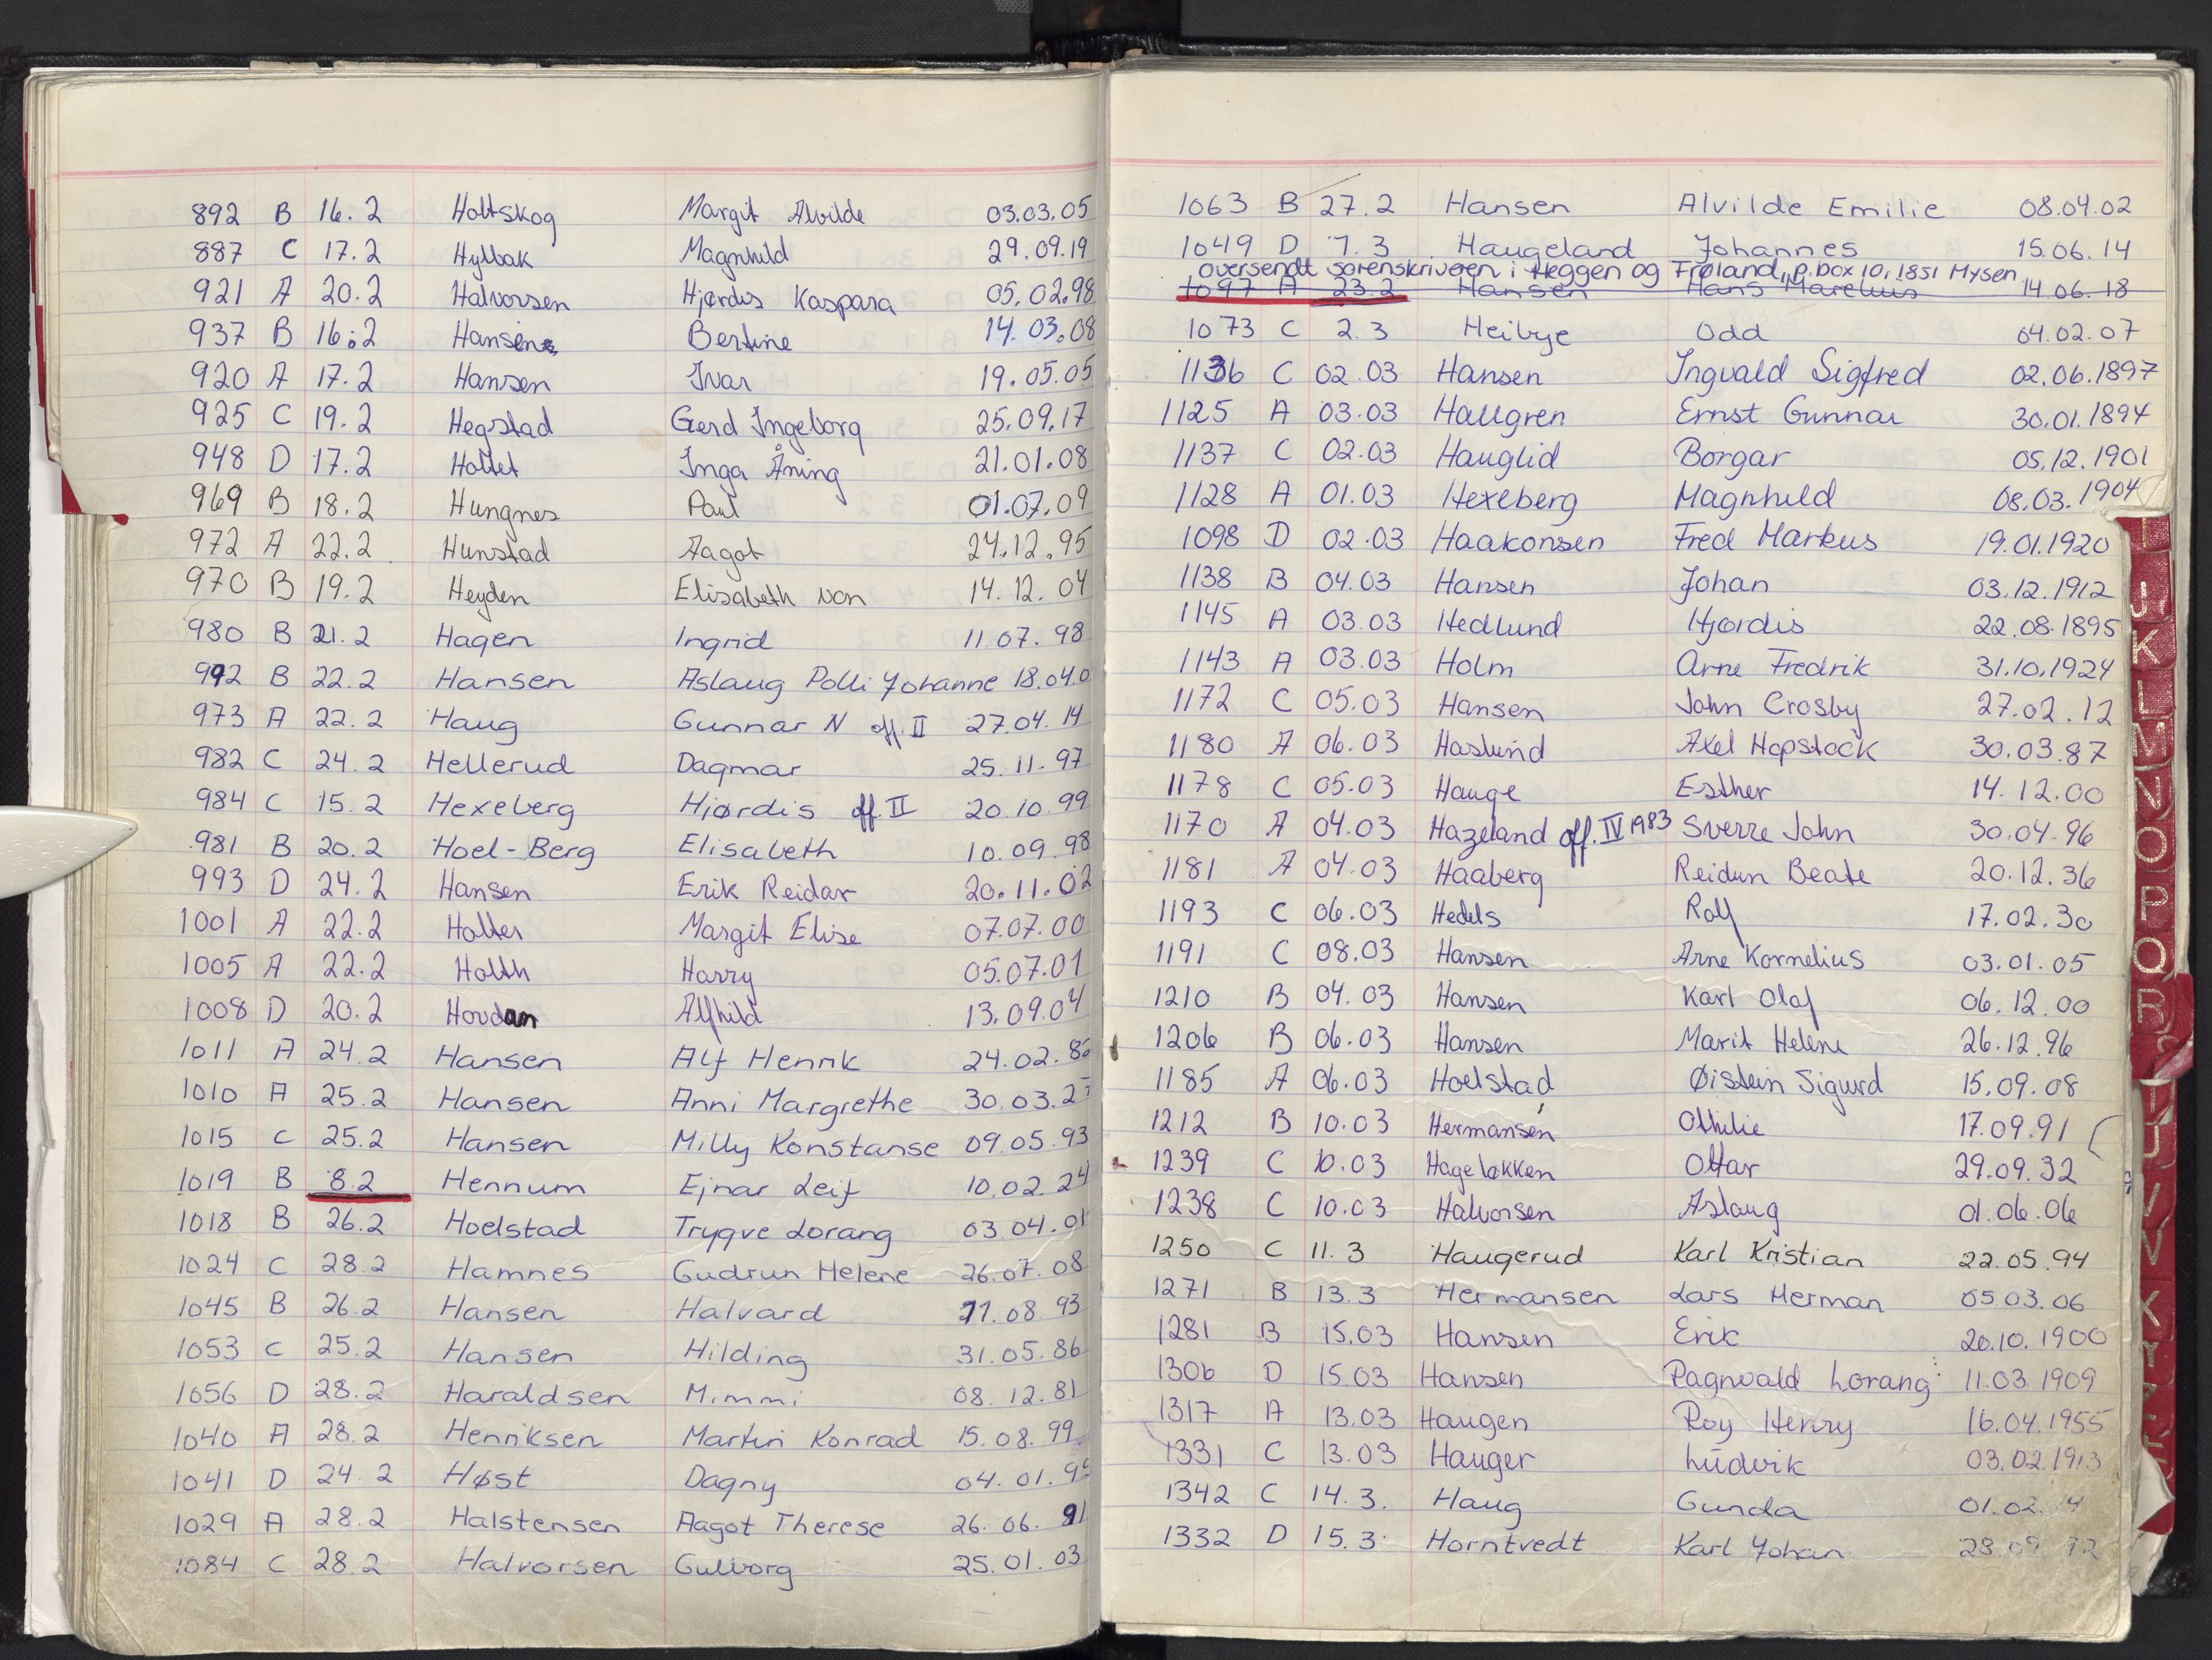 892 B 16.2 Holtskog Margit Alvilde 03.03.05
887 C 17.2 Hylbak Magnhild 29.09.19
921 A 20.2 Halvorsen Hjørdis Kaspara 05.02.98
937 B 16.2 Hansen Bertine 14.03.08
920 A 17.2 Hansen Ivar 19.05.05
925 C 19.2 Hegstad Gerd Ingeborg 25.09.17
948 D 17.2 Holtet Inga Åning 21.01.08
969 B 18.2 Hungnes Paul 01.07.09
972 A 22.2 Hunstad Aagot 24.12.95
970 B 19.2 Heyden Elisabeth von 14.12.04
980 B 21.2 Hagen Ingrid 11.07.98
992 B 22.2 Hansen Aslaug Polli Johanne 18.04.0
973 A 22.2 Haug Gunnar N off. II 27.04.14
982 C 24.2 Hellerud Dagmar 25.11.97
984 C 15.2 Hexeberg Hjørdis off. II 20.10.99
981 B 20.2 Hoel-Berg Elisabeth 10.09.98
993 D 24.2 Hansen Erik Reidar 20.11.02
1001 A 22.2 Holter Margit Elise 07.07.00
1005 A 22.2 Holth Harry 05.07.01
1008 D 20.2 Hovdan Alfhild 13.09.04
1011 A 24.2 Hansen Alf Henrik 24.02.86
1010 A 25.2 Hansen Anni Margrethe 30.03.2
1015 C 25.2 Hansen Milly Konstanse 09.05.93
1019 B 8.2 Hennum Ejnar Leif 10.02.24
1018 B 26.2 Hoelstad Trygve Lorang 03.04.01
1024 C 28.2 Hamnes Gudrun Helene 26.07.08
1045 B 26.2 Hansen Halvard 11.08.93
1053 C 25.2 Hansen Hilding 31.05.86
1056 D 28.2 Haraldsen Mimmi 08.12.81
1040 A 28.2 Henriksen Martin Konrad 15.08.99
1041 D 24.2 Høst Dagny 04.01.9
1029 A 28.2 Halstensen Aagot Therese 26.06.91
1084 C 28.2 Halvorsen Gulborg 25.01.03
1063 B 27.2 Hansen Alvilde Emilie 08.04.02
1049 D 7.3 Haugeland Johannes 15.06.14
oversendt sorenskriveren i Heggen og Frøland, p.box 10, 1851 Mysen
1097 A 23.2 Hansen Hans Marelius 14.06.18
1073 C 2.3 Heibye Odd 04.02.07
1136 C 02.03 Hansen Ingvald Sigfred 02.06.1897
1125 A 03.03 Hallgren Ernst Gunnar 30.01.1894
1137 C 02.03 Hauglid Borgar 05.12.1901
1128 A 01.03 Hexeberg Magnhild 08.03.1904
1098 D 02.03 Haakonsen Fred Markus 19.01.1920
1138 B 04.03 Hansen Johan 03.12.1912
1145 A 03.03 Hedlund Hjørdis 22.08.1895
1143 A 03.03 Holm Arne Fredrik 31.10.1924
1172 C 05.03 Hansen John Crosby 27.02.12
1180 A 06.03 Haslund Axel Hopstock 30.03.87
1178 C 05.03 Hauge Esther 14.12.00
1170 A 04.03 Hazeland off. IV 1983 Sverre John 30.04.96
1181 A 04.03 Haaberg Reidun Beate 20.12.36
1193 C 06.03 Hedels Rolf 17.02.30
1191 C 08.03 Hansen Arne Kornelius 03.01.05
1210 B 04.03 Hansen Karl Olaf 06.12.00
1206 B 06.03 Hansen Marit Helene 26.12.96
1185 A 06.03 Hoelstad Øistein Sigurd 15.09.08
1212 B 10.03 Hermansen Othilie 17.09.91
1239 C 10.03 Hageløkken Ottar 29.09.32
1238 C 10.03 Halvorsen Aslaug 01.06.06
1250 C 11.3 Haugerud Karl Kristian 22.05.94
1271 B 13.3 Hermansen Lars Herman 05.03.06
1281 B 15.03 Hansen Erik 20.10.1900
1306 D 15.03 Hansen Ragnvald Lorang 11.03.1909
1317 A 13.03 Haugen Roy Henry 16.04.1955
1331 C 13.03 Hauger Ludvik 03.02.1913
1342 C 14.3. Haug Gunda 01.02.14
1332 D 15.3 Horntvedt Karl Johan 28.09.92
I
J
K
L
M
N
O
P
Q
R
U
V